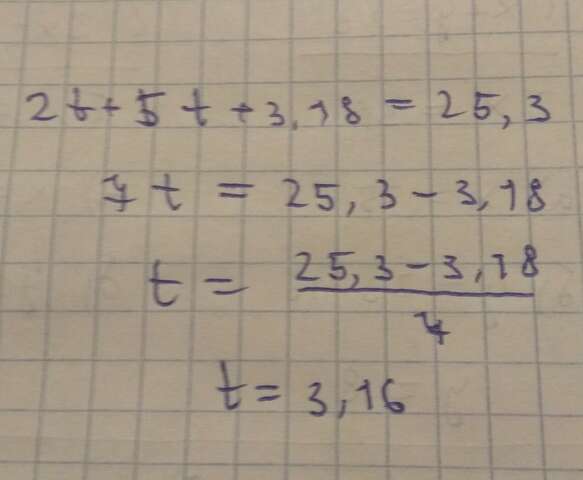 2t+5t+3,18=25,3
7t=25,3-3,18
t=\frac{25,3-3,18}{7}
t=3,16